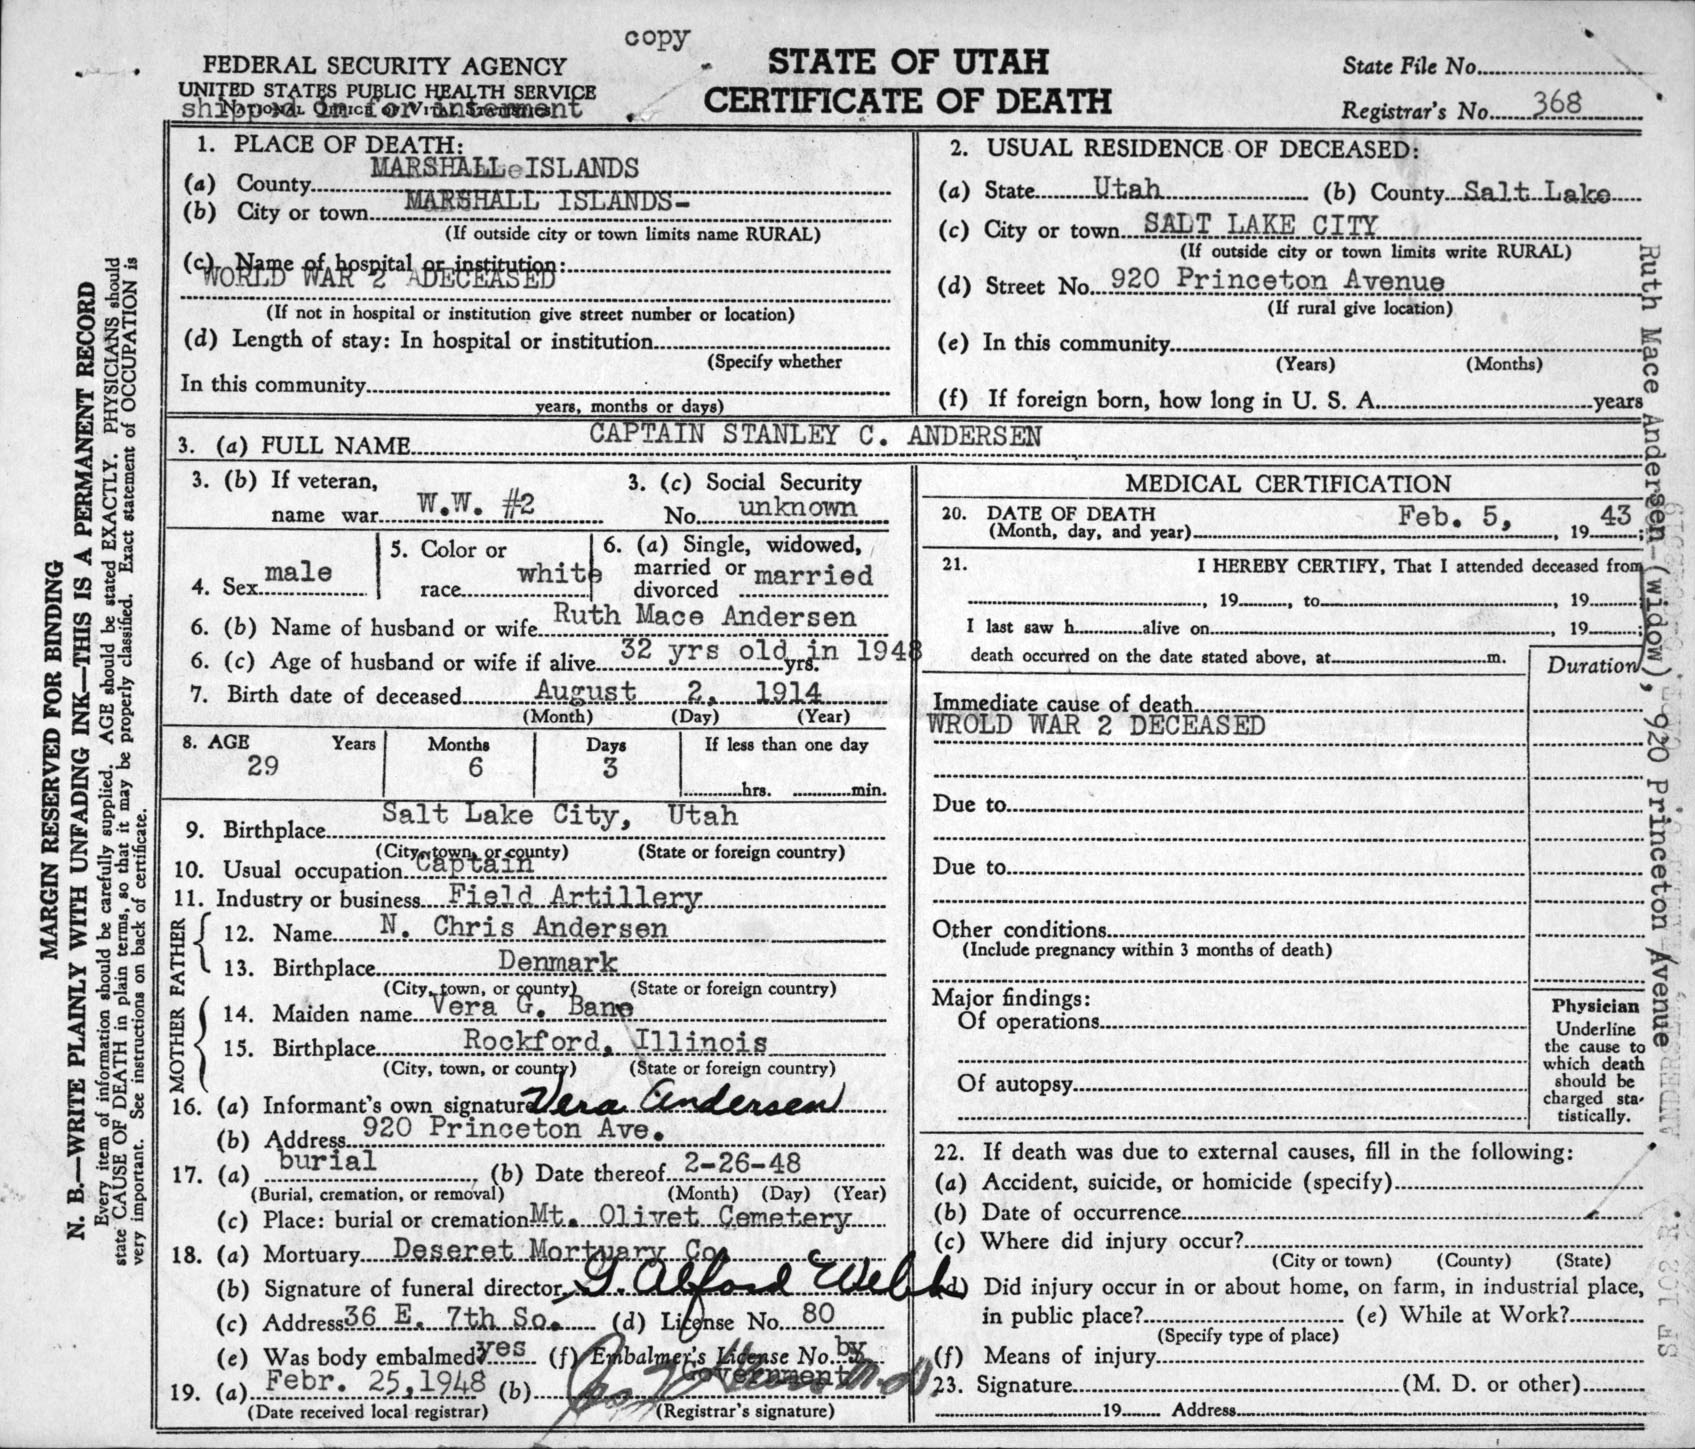 copy
FEDERAL SECURITY AGENCY
UNITED STATES PUBLIC HEALTH SERVICE
NATIONAL OFFICE OF VITAL STATISTICS
shipped in for interment
STATE OF UTAH
CERTIFICATE OF DEATH
State File No.
Registrar's No. 368
1. PLACE OF DEATH:
(a) County MARSHALL ISLANDS
(b) City or town MARSHALL ISLANDS-
(If outside city or town limits name RURAL)
(c) Name of hospital or institution:
WORLD WAR 2 DECEASED
(If not in hospital or institution give street number or location)
(d) Length of stay: In hospital or institution
(Specify whether
In this community
years, months or days)
2. USUAL RESIDENCE OF DECEASED:
(a) State Utah (b) County Salt Lake
(c) City or town SALT LAKE CITY
(If outside city or town limits write RURAL)
(d) Street No. 920 Princeton Avenue
(If rural give location)
(e) In this community
(Years) (Months)
(f) If foreign born, how long in U. S. A. years
3. (a) FULL NAME CAPTAIN STANLEY C. ANDERSEN
3. (b) If veteran,
name war W.W. #2
3. (c) Social Security
No. unknown
4. Sex male
5. Color or
race white
6. (a) Single, widowed,
married or
divorced married
6. (b) Name of husband or wife Ruth Mace Andersen
6. (c) Age of husband or wife if alive 32 yrs old in 1948 yrs.
7. Birth date of deceased August 2, 1914
(Month) (Day) (Year)
8. AGE Years Months Days If less than one day
29 6 3
hrs. min.
9. Birthplace Salt Lake City, Utah
(City, town, or county) (State or foreign country)
10. Usual occupation Captain
11. Industry or business Field Artillery
FATHER
12. Name N. Chris Andersen
13. Birthplace Denmark
(City, town, or county) (State or foreign country)
MOTHER
14. Maiden name Vera G. Bane
15. Birthplace Rockford, Illinois
(City, town, or county) (State or foreign country)
16. (a) Informant's own signature Vera Andersen
(b) Address 920 Princeton Ave.
17. (a) burial (b) Date thereof 2-26-48
(Burial, cremation, or removal) (Month) (Day) (Year)
(c) Place: burial or cremation Mt. Olivet Cemetery
18. (a) Mortuary Deseret Mortuary Co.
(b) Signature of funeral director G. Alford Webb
(c) Address 36 E. 7th So. (d) License No. 80
(e) Was body embalmed? yes (f) Embalmer's License No. by
Government
19. (a) Febr. 25,1948 (b)
(Date received local registrar) (Registrar's signature)
MEDICAL CERTIFICATION
20. DATE OF DEATH
(Month, day, and year) Feb. 5, , 19 43 ;
21. I HEREBY CERTIFY, That I attended deceased from
, 19 , to , 19
I last saw h alive on , 19 ;
death occurred on the date stated above, at m.
Duration
Immediate cause of death
WROLD WAR 2 DECEASED
Due to
Due to
Other conditions
(Include pregnancy within 3 months of death)
Major findings:
Of operations
Of autopsy
Physician
Underline
the cause to
which death
should be
charged sta-
tistically.
22. If death was due to external causes, fill in the following:
(a) Accident, suicide, or homicide (specify)
(b) Date of occurrence
(c) Where did injury occur?
(City or town) (County) (State)
(d) Did injury occur in or about home, on farm, in industrial place,
in public place? (e) While at Work?
(Specify type of place)
(f) Means of injury
23. Signature (M. D. or other)
19 Address
MARGIN RESERVED FOR BINDING
N. B.—WRITE PLAINLY WITH UNFADING INK—THIS IS A PERMANENT RECORD
Every item of information should be carefully supplied. AGE should be stated EXACTLY. PHYSICIANS should
state CAUSE OF DEATH in plain terms, so that it may be properly classified. Exact statement of OCCUPATION is
very important. See instructions on back of certificate.
Ruth Mace Andersen-(widow), 920 Princeton Avenue